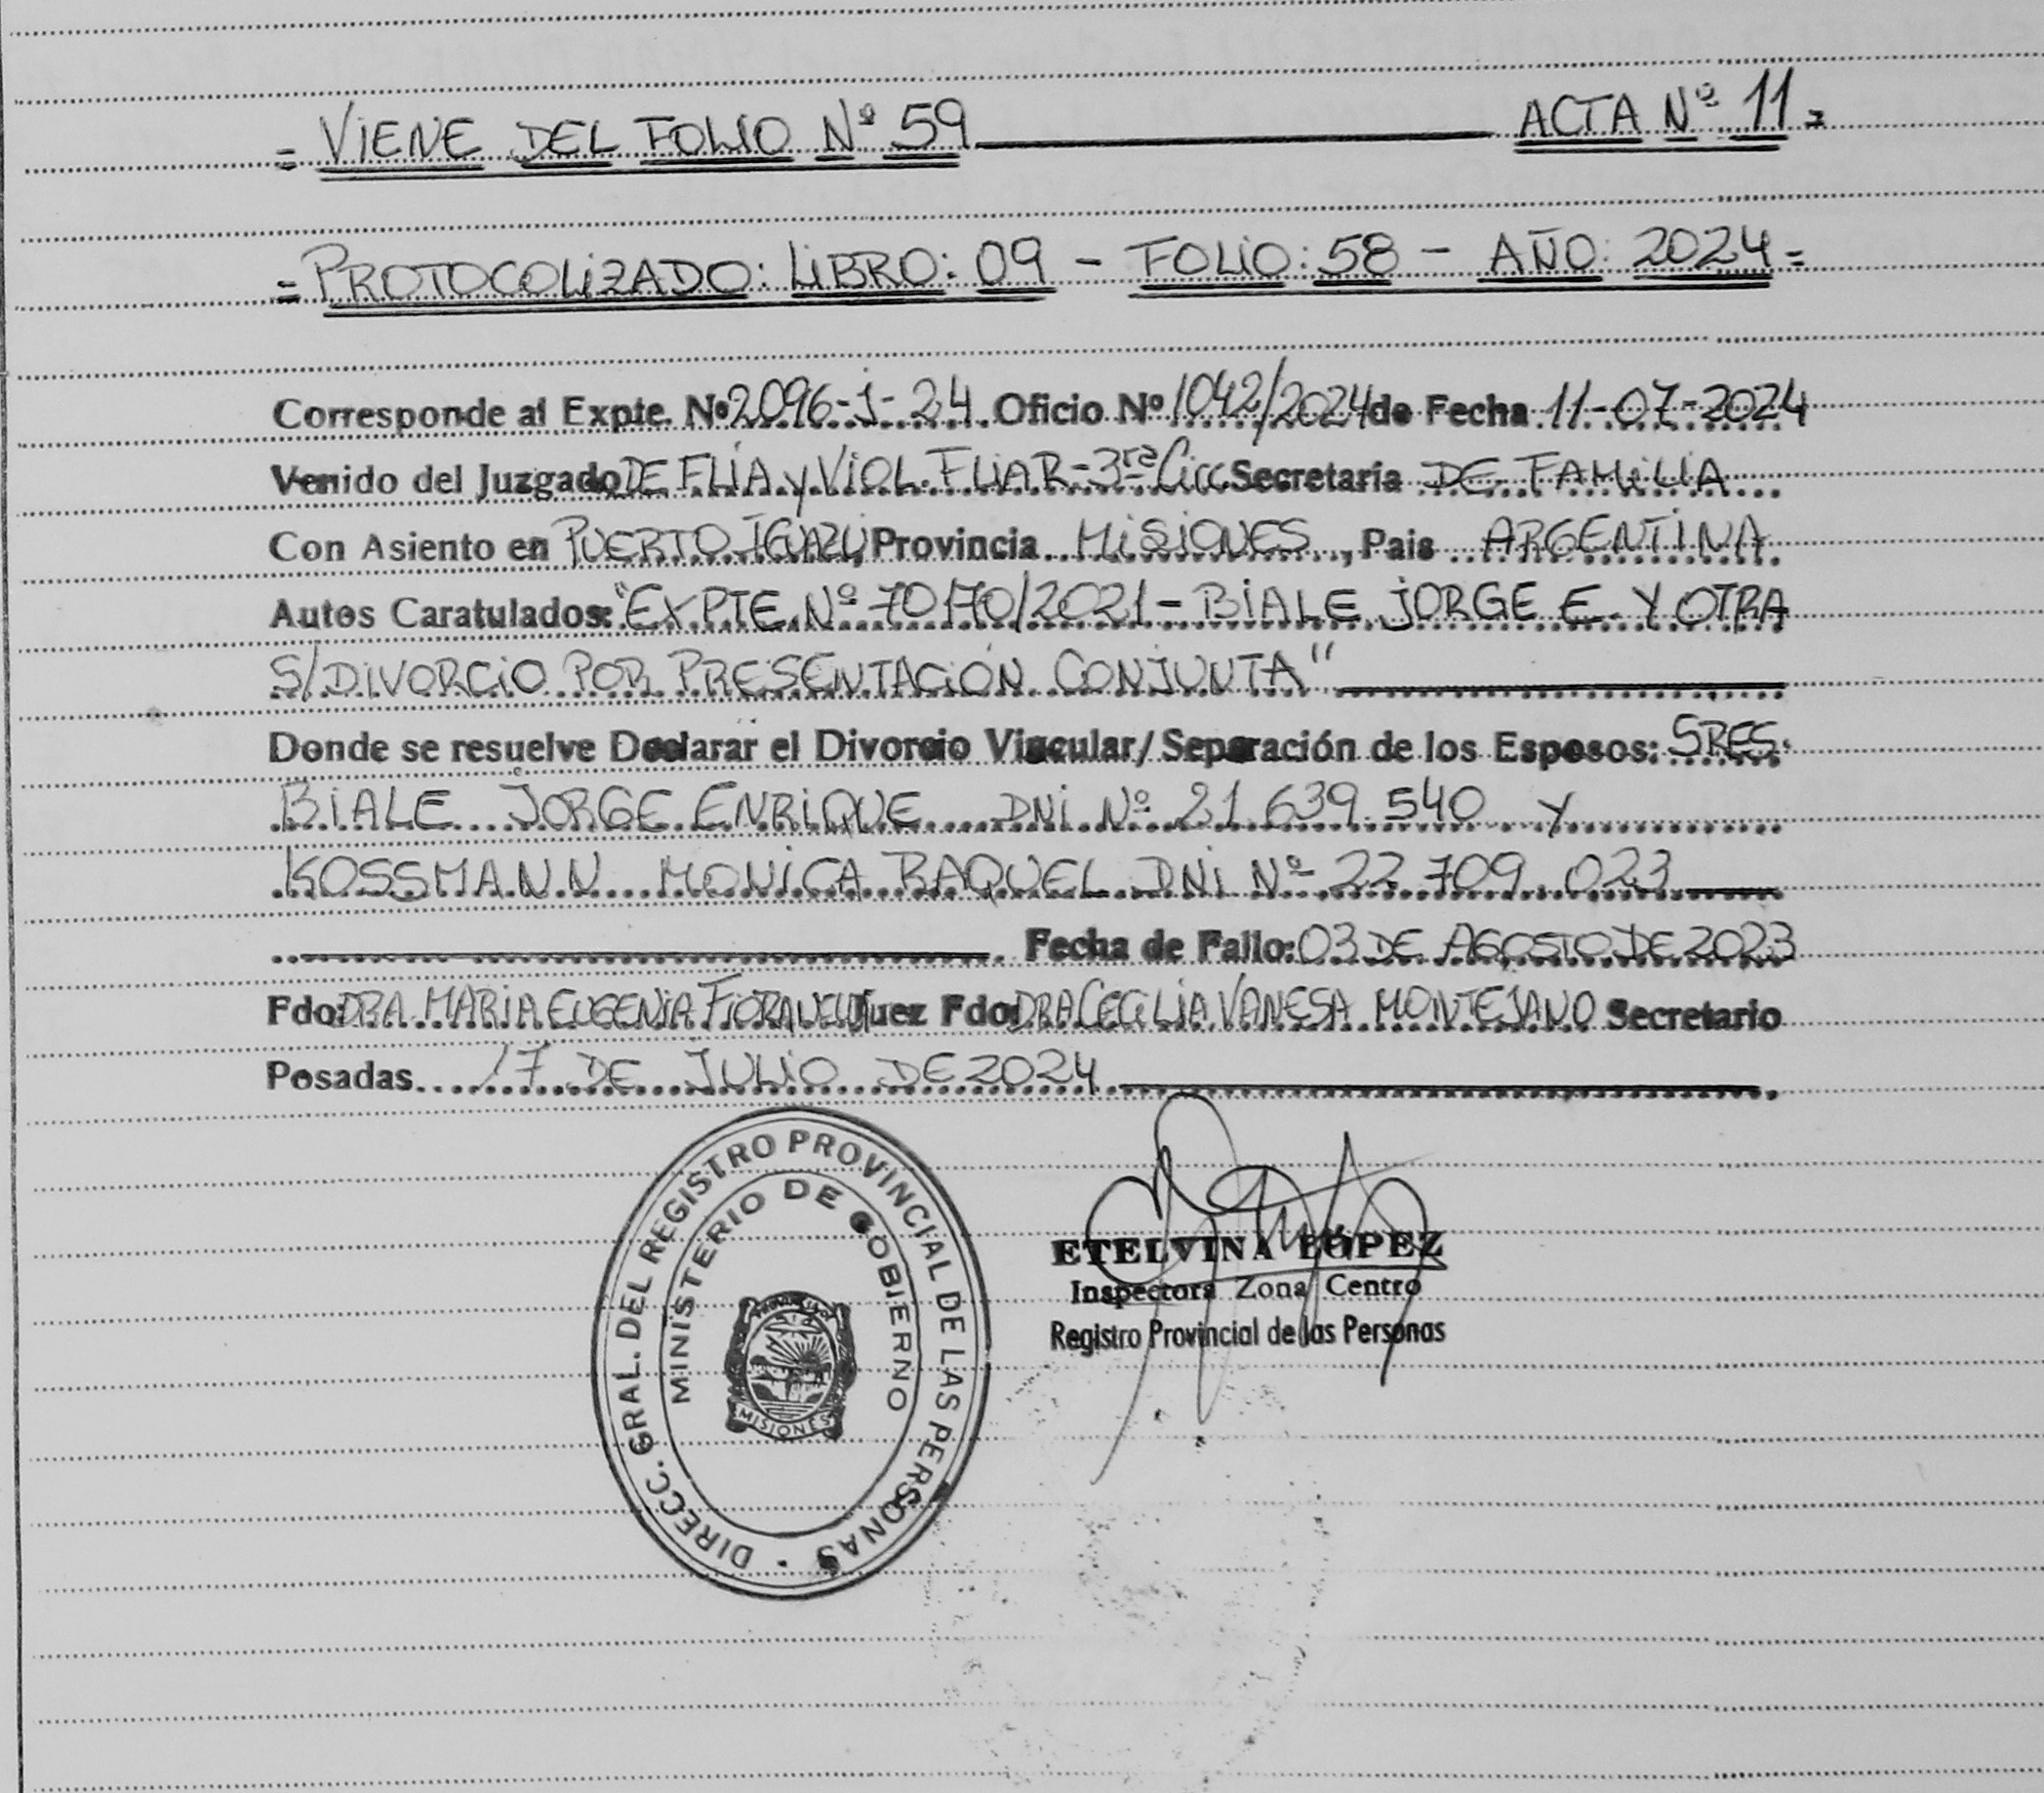 = VIENE DEL FOLIO Nº 59 ACTA Nº 11 =
= PROTOCOLIZADO: LIBRO: 09 - FOLIO: 58 - AÑO: 2024 =
Corresponde al Expte. Nº 2096-J-24 Oficio Nº 1042/2024 de Fecha 11-07-2024
Venido del Juzgado DE FLIA y VIOL. FLIAR - 3ra Circ Secretaría DE FAMILIA
Con Asiento en PUERTO IGUAZU, Provincia MISIONES, Pais ARGENTINA
Autos Caratulados: "EXPTE. Nº 70170/2021 - BIALE JORGE E. Y OTRA
S/DIVORCIO POR PRESENTACIÓN CONJUNTA"
Donde se resuelve Declarar el Divorcio Vincular/Separación de los Esposos: SRES.
BIALE JORGE ENRIQUE DNI Nº 21.639.540 y
KOSSMANN MONICA RAQUEL DNI Nº 22.709.023
Fecha de Fallo: 03 DE AGOSTO DE 2023
Fdo: DRA. MARIA EUGENIA Juez Fdo: DRA CECILIA VANESA MONTEJANO Secretario
Posadas 17 DE JULIO DE 2024
DIRECC. GRAL. DEL REGISTRO PROVINCIAL DE LAS PERSONAS
MINISTERIO DE GOBIERNO
MISIONES
ETELVINA LÓPEZ
Inspectora Zona Centro
Registro Provincial de las Personas